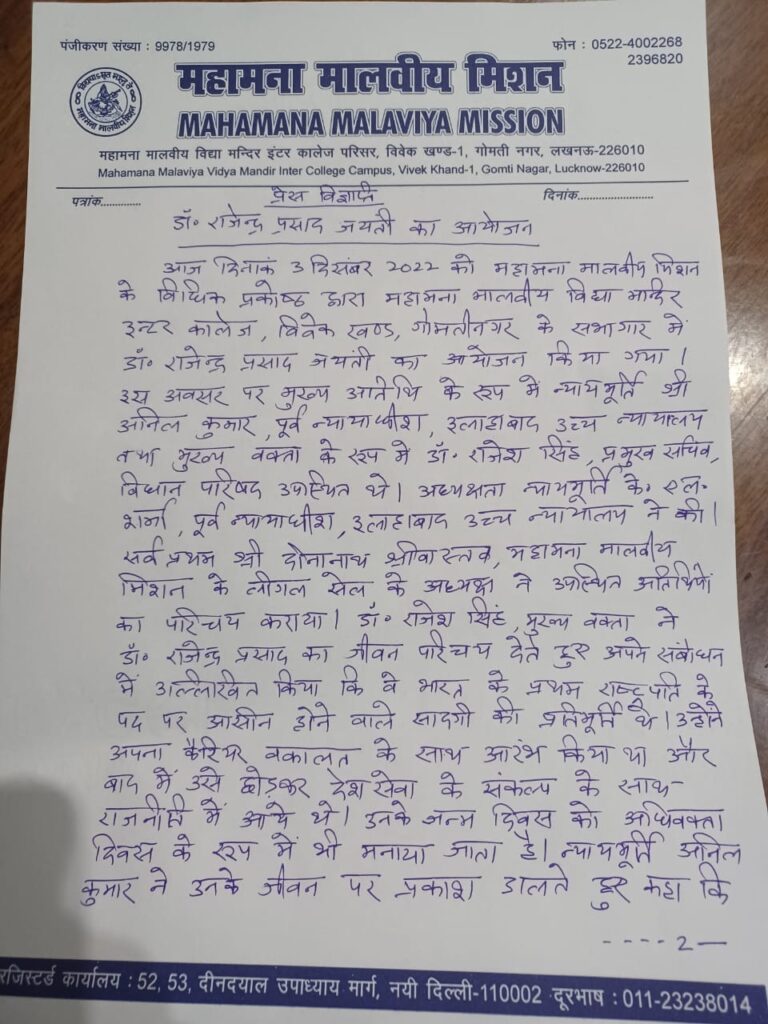 पंजीकरण संख्या : 9978/1979
फोन : 0522-4002268
2396820
महामना मालवीय मिशन
MAHAMANA MALAVIYA MISSION
महामना मालवीय विद्या मन्दिर इंटर कालेज परिसर, विवेक खण्ड-1, गोमती नगर, लखनऊ-226010
Mahamana Malaviya Vidya Mandir Inter College Campus, Vivek Khand-1, Gomti Nagar, Lucknow-226010
पत्रांक............. दिनांक.........................
प्रेस विज्ञप्ति
डॉ॰ राजेन्द्र प्रसाद जयंती का आयोजन
आज दिनांक 3 दिसंबर 2022 को महामना मालवीय मिशन
के विधिक प्रकोष्ठ द्वारा महामना मालवीय विद्या मन्दिर
इन्टर कालेज, विवेक खण्ड, गोमतीनगर के सभागार में
डॉ॰ राजेन्द्र प्रसाद जयंती का आयोजन किया गया।
इस अवसर पर मुख्य अतिथि के रूप में न्यायमूर्ति श्री
अनिल कुमार, पूर्व न्यायाधीश, इलाहाबाद उच्च न्यायालय
तथा मुख्य वक्ता के रूप मे डॉ॰ राजेश सिंह, प्रमुख सचिव,
विधान परिषद उपस्थित थे। अध्यक्षता न्यायमूर्ति के॰ एल॰
शर्मा, पूर्व न्यायाधीश, इलाहाबाद उच्च न्यायालय ने की।
सर्व प्रथम श्री दीनानाथ श्रीवास्तव, महामना मालवीय
मिशन के लीगल सेल के अध्यक्ष ने उपस्थित अतिथियों
का परिचय कराया। डॉ॰ राजेश सिंह, मुख्य वक्ता ने
डॉ॰ राजेन्द्र प्रसाद का जीवन परिचय देते हुए अपने संबोधन
में उल्लिखित किया कि वे भारत के प्रथम राष्ट्रपति के
पद पर आसीन होने वाले सादगी की प्रतिमूर्ति थे। उन्होंने
अपना कैरियर वकालत के साथ आरंभ किया था और
बाद में उसे छोड़कर देश सेवा के संकल्प के साथ
राजनीति में आये थे। उनके जन्म दिवस को अधिवक्ता
दिवस के रूप में भी मनाया जाता है। न्यायमूर्ति अनिल
कुमार ने उनके जीवन पर प्रकाश डालते हुए कहा कि
---- 2 —
रजिस्टर्ड कार्यालय : 52, 53, दीनदयाल उपाध्याय मार्ग, नयी दिल्ली-110002 दूरभाष : 011-23238014